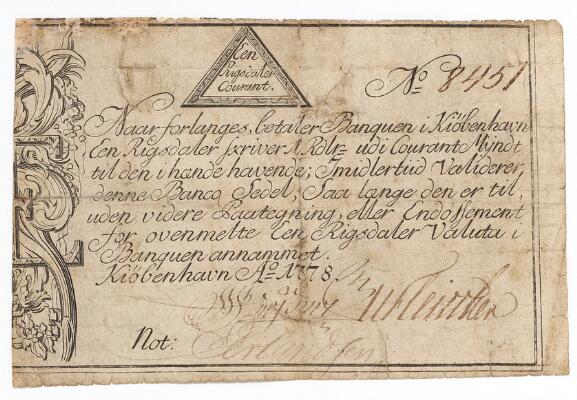 Een
Rigsdaler
Courant.
No 8451
Naar forlanges, betaler Banquen i Kiöbenhavn
Een Rigsdaler skriver 1 Rdlr udi Courant Myndt
til den i hænde havende; Imidlertiid Validerer
denne Banco Sedel, Saa længe den er til,
uden videre Paategning, eller Endossement
for ovenmelte Een Rigsdaler Valuta i
Banquen annammet.
Kiöbenhavn Ao 1778.
Not: